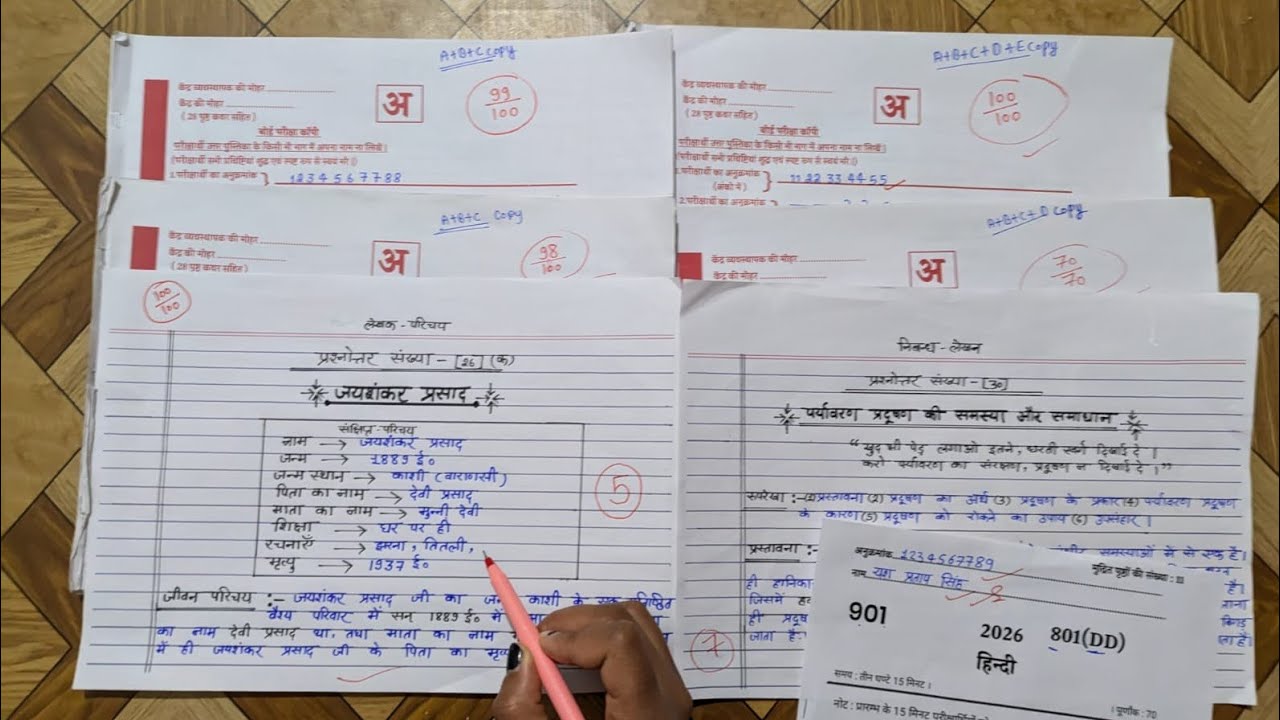 A+B+C Copy
केंद्र व्यवस्थापक की मोहर
केंद्र की मोहर
( 28 पृष्ठ कवर सहित )
अ
99/100
बोर्ड परीक्षा कॉपी
परीक्षार्थी उत्तर पुस्तिका के किसी भी भाग में अपना नाम ना लिखें।
(परीक्षार्थी सभी प्रविष्टियां शुद्ध एवं स्पष्ट रूप से स्वयं भरें।)
1.परीक्षार्थी का अनुक्रमांक } 1234567788
A+B+C+D+E Copy
केंद्र व्यवस्थापक की मोहर
केंद्र की मोहर
( 28 पृष्ठ कवर सहित )
अ
100/100
बोर्ड परीक्षा कॉपी
परीक्षार्थी उत्तर पुस्तिका के किसी भी भाग में अपना नाम ना लिखें।
(परीक्षार्थी सभी प्रविष्टियां शुद्ध एवं स्पष्ट रूप से स्वयं भरें।)
1.परीक्षार्थी का अनुक्रमांक } 1122334455
(अंको में)
2.परीक्षार्थी का अनुक्रमांक
A+B+C Copy
केंद्र व्यवस्थापक की मोहर
केंद्र की मोहर
( 28 पृष्ठ कवर सहित )
अ
98/100
A+B+C+D Copy
केंद्र व्यवस्थापक की मोहर
केंद्र की मोहर
अ
70/70
100/100
लेखक - परिचय
प्रश्नोत्तर संख्या - [26] (क)
जयशंकर प्रसाद
संक्षिप्त - परिचय
नाम → जयशंकर प्रसाद
जन्म → 1889 ई०
जन्म स्थान → काशी (वाराणसी)
पिता का नाम → देवी प्रसाद
माता का नाम → मुन्नी देवी
शिक्षा → घर पर ही
रचनाएँ → झरना, तितली,
मृत्यु → 1937 ई०
5
जीवन परिचय :- जयशंकर प्रसाद जी का जन्म काशी के एक
वैश्य परिवार में सन् 1889 ई० में
का नाम देवी प्रसाद था, तथा माता का नाम
में ही जयशंकर प्रसाद जी के पिता का
निबन्ध - लेखन
प्रश्नोत्तर संख्या - [30]
पर्यावरण प्रदूषण की समस्या और समाधान
“खुद भी पेड़ लगाओ इतने, धरती स्वर्ग दिखाई दे।
करो पर्यावरण का संरक्षण, प्रदूषण न दिखाई दे।”
रूपरेखा :- (1) प्रस्तावना (2) प्रदूषण का अर्थ (3) प्रदूषण के प्रकार (4) पर्यावरण प्रदूषण
के कारण (5) प्रदूषण को रोकने का उपाय (6) उपसंहार।
प्रस्तावना :- समस्याओं में से एक है।
ही हानिका
जिसमें
ही प्रदूष
जाता है
7
अनुक्रमांक 1234567789
मुद्रित पृष्ठों की संख्या :
नाम यश प्रताप सिंह
901
2026
801(DD)
हिन्दी
समय : तीन घण्टे 15 मिनट ।
। पूर्णांक : 70
नोट : प्रारम्भ के 15 मिनट परीक्षार्थियों को